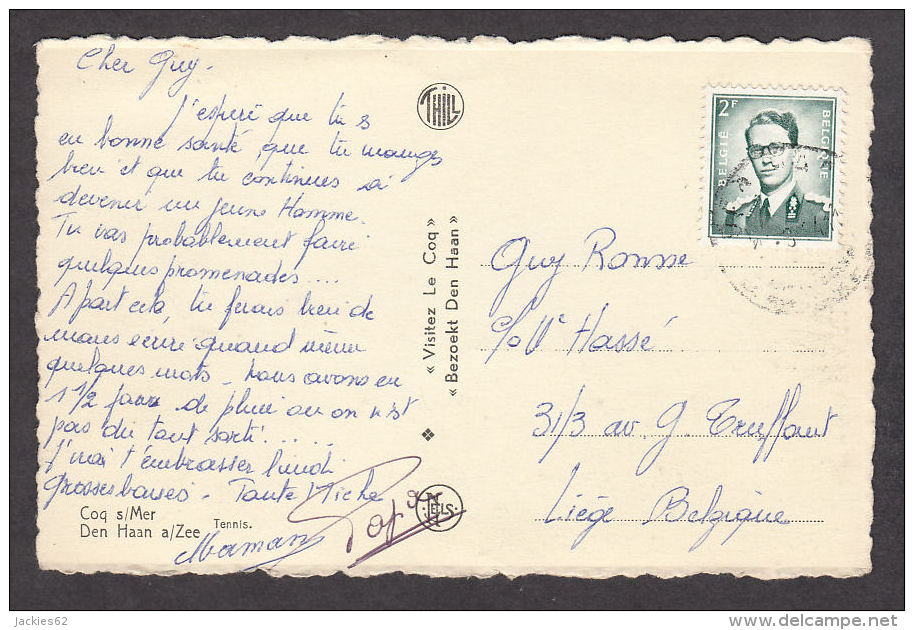 Cher Guy.
J'espère que tu es
en bonne santé, que tu manges
bien et que tu continues à
devenir un jeune Homme.
Tu vas probablement faire
quelques promenades....
A part cela, tu ferais bien de
nous écrire quand même
quelques mots - nous avons eu
1 1/2 jour de pluie ou on n'est
pas du tout sorti.....
J'irai t'embrasser lundi
Grosses baises - Tante Miche
Maman Papa
Coq s/Mer
Den Haan a/Zee Tennis.
THILL
« Visitez Le Coq »
« Bezoekt Den Haan »
NELS
2F
BELGIE
BELGIQUE
Guy Ronsse
c/o Me Hassé
31/3 av. G Truffaut
Liège Belgique
jackies62
www.delcampe.net